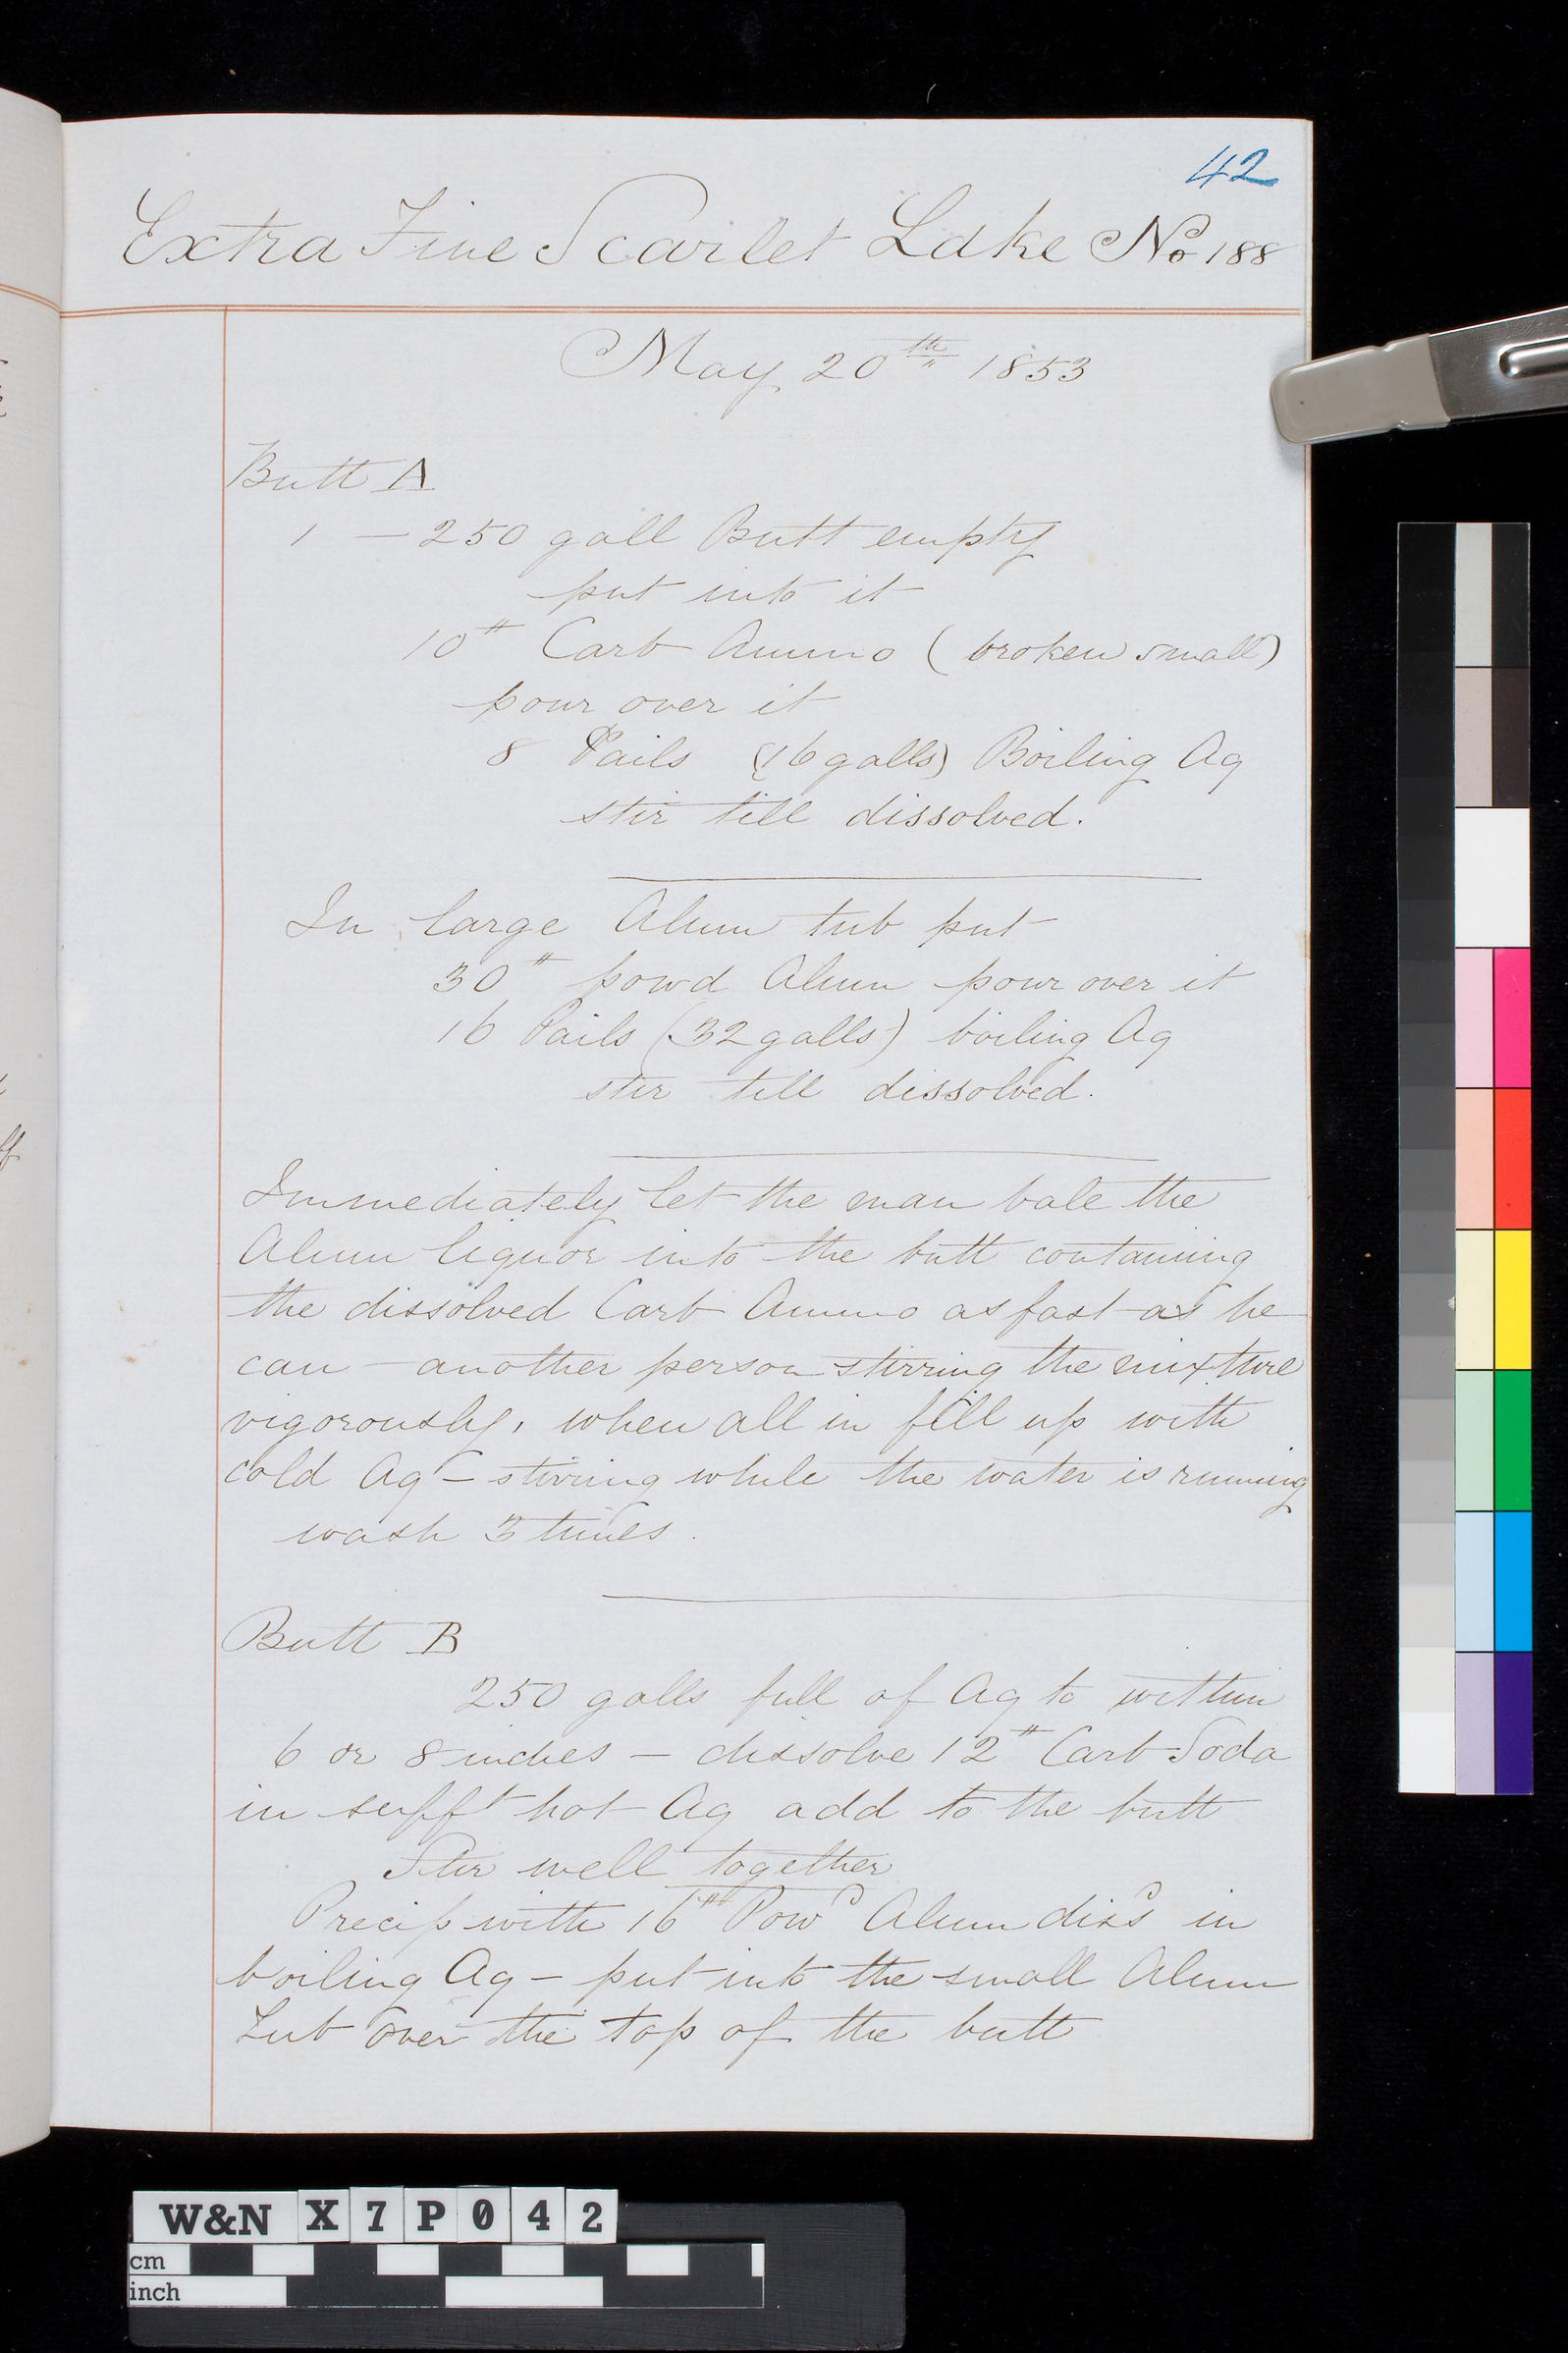 42
Extra Fine Scarlet Lake No 188
May 20th 1853
Butt A
1 — 250 gall Butt empty
put into it
10# Carb Ammo (broken small)
pour over it
8 Pails (16 galls) Boiling Aq
stir till dissolved.
In large Alum tub put
30# powd Alum pour over it
16 Pails (32 galls) boiling Aq
stir till dissolved.
Immediately let the man bale the
Alum liquor into the butt containing
the dissolved Carb Ammo as fast as he
can another person stirring the mixture
vigorously, when all in fill up with
cold Aq – stirring while the water is running
wash 3 times.
Butt B
250 galls full of Aq to within
6 or 8 inches – dissolve 12# Carb Soda
in sufft hot Aq add to the butt
Stir well together
Precip with 16# Powd Alum dissd in
boiling Aq – put into the small Alum
Tub over the top of the butt
W&N X7P042
cm
inch